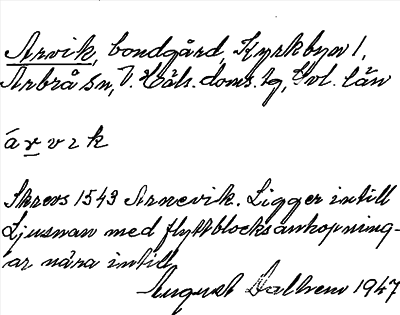 Arvik, bondgård, Kyrkbyn 1,
Arbrå sn, V. Häls. doms. tg, Gvl. län
á r v ı k
Skrevs 1543 Arnevik. Ligger intill
Ljusnan med flyttblocksanhopning-
ar nära intill
August Dalbem 1947